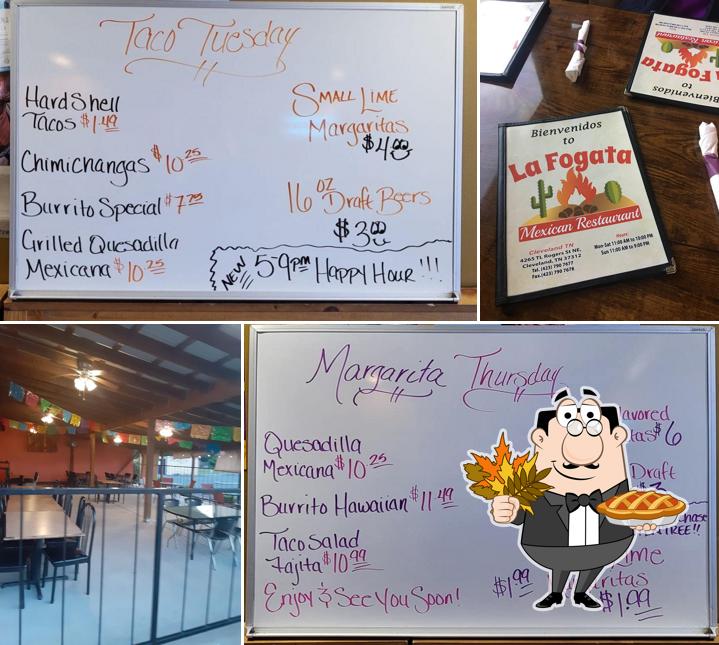 Taco Tuesday
Hard Shell
Tacos $1.49
Chimichangas $10.25
Burrito Special $7.75
Grilled Quesadilla
Mexicana $10.25
Small Lime
Margaritas
$4.00
16 oz Draft Beers
$3.00
NEW 5-9pm Happy Hour!!!
Bienvenidos
to
La Fogata
Mexican Restaurant
Cleveland TN
4265 TL Rogers St NE,
Cleveland, TN 37312
Tel. (423) 790 7677
Fax. (423) 790 7678
Hours:
Mon-Sat 11:00 AM to 10:00 PM
Sun 11:00 AM to 9:00 PM
Mexican Restaurant
La Fogata
to
Bienvenidos
Margarita Thursday
Quesadilla
Mexicana $10.25
Burrito Hawaiian $11.49
Taco Salad
Fajita $10.99
Enjoy & See You Soon!
$6
Draft
$1.99
$1.99